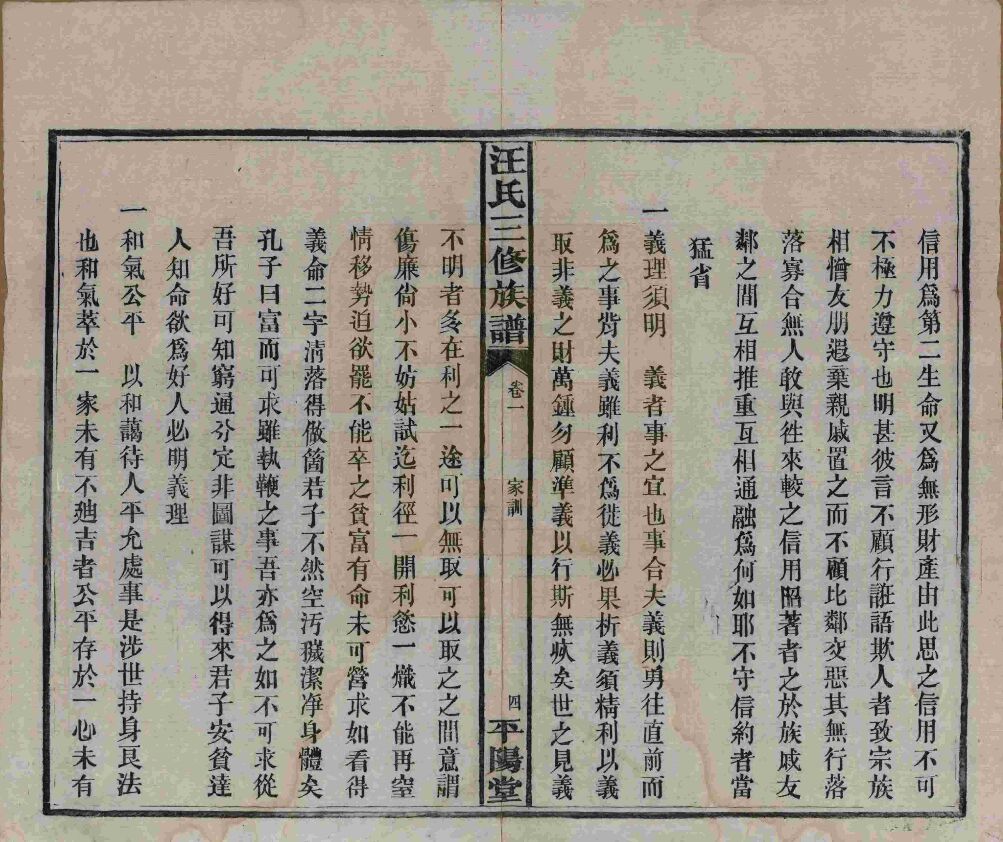 信用爲第二生命又爲無形財產由此思之信用不可
不極力遵守也明甚彼言不顧行誑語欺人者致宗族
相憎友朋遐棄親戚置之而不顧比鄰交惡其無行落
落寡合無人敢與徃來較之信用昭著者之於族戚友
鄰之間互相推重互相通融爲何如耶不守信約者當
猛省
一義理須明 義者事之宜也事合夫義則勇往直前而
爲之事背夫義雖利不爲徙義必果析義須精利以義
取非義之財萬鍾勿顧準義以行斯無疚矣世之見義
汪氏三修族譜 卷一 家訓 四 平陽堂
不明者多在利之一途可以無取可以取之之間意謂
傷廉尙小不妨姑試迄利徑一開利慾一熾不能再窒
情移勢迫欲罷不能卒之貧富有命未可營求如看得
義命二字淸落得做箇君子不然空汚穢潔净身體矣
孔子曰富而可求雖執鞭之事吾亦爲之如不可求從
吾所好可知窮通分定非圖謀可以得來君子安貧達
人知命欲爲好人必明義理
一和氣公平 以和藹待人平允處事是涉世持身良法
也和氣萃於一家未有不廸吉者公平存於一心未有